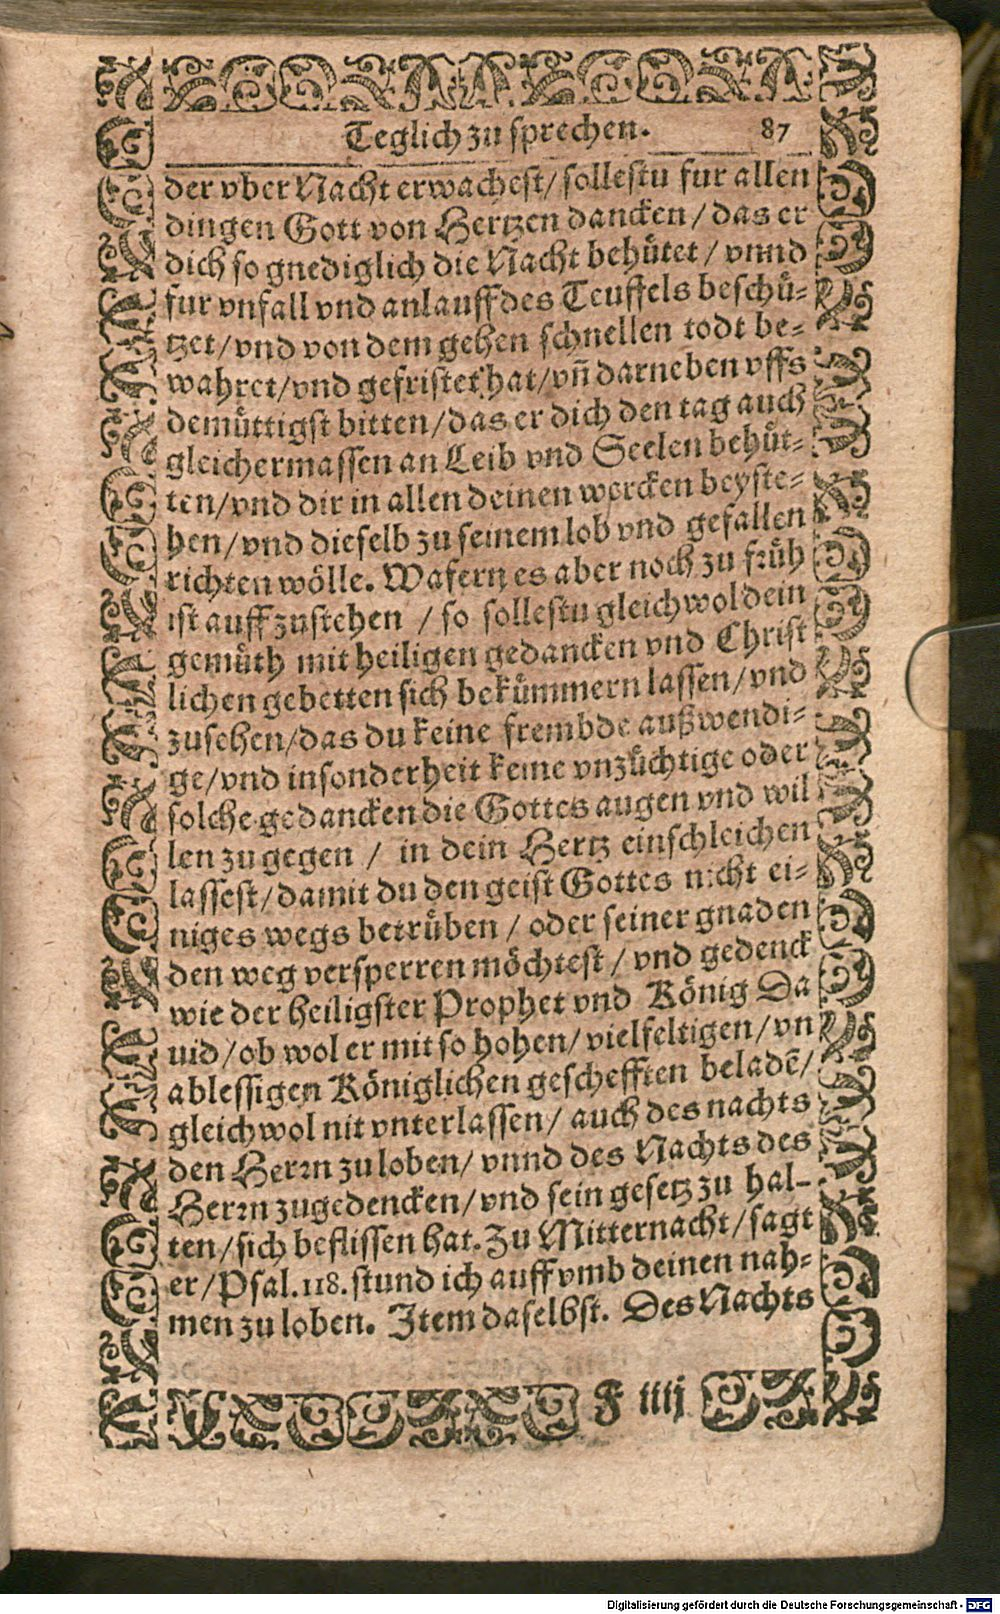 Teglich zu sprechen. 87
der vber Nacht erwachest/ sollestu fur allen
dingen Gott von Hertzen dancken/ das er
dich so gnediglich die Nacht behütet/ vnnd
fur vnfall vnd anlauff des Teuffels beschü-
tzet/ vnd von dem gehen schnellen todt be-
wahret/ vnd gefristet hat/ vñ darneben vffs
demüttigst bitten/ das er dich den tag auch
gleichermassen an Leib vnd Seelen behüt-
ten/ vnd dir in allen deinen wercken beyste-
hen/ vnd dieselb zu seinem lob vnd gefallen
richten wölle. Wafern es aber noch zu früh
ist auff zustehen / so sollestu gleichwol dein
gemüth mit heiligen gedancken vnd Christ
lichen gebetten sich bekümmern lassen/ vnd
zusehen/ das du keine frembde außwendi-
ge/ vnd insonderheit keine vnzüchtige oder
solche gedancken die Gottes augen vnd wil
len zu gegen / in dein Hertz einschleichen
lassest/ damit du den geist Gottes nicht ei-
niges wegs betrüben / oder seiner gnaden
den weg versperren möchtest/ vnd gedenck
wie der heiligster Prophet vnd König Da
uid/ ob wol er mit so hohen/ vielfeltigen/ vn
ablessigen Königlichen geschefften beladẽ/
gleichwol nit vnterlassen/ auch des nachts
den Herrn zu loben/ vnnd des Nachts des
Herrn zugedencken/ vnd sein gesetz zu hal-
ten/ sich beflissen hat. Zu Mitternacht/ sagt
er/ Psal. 118. stund ich auff vmb deinen nah-
men zu loben. Item daselbst. Des Nachts
F iiij
Digitalisierung gefördert durch die Deutsche Forschungsgemeinschaft - DFG